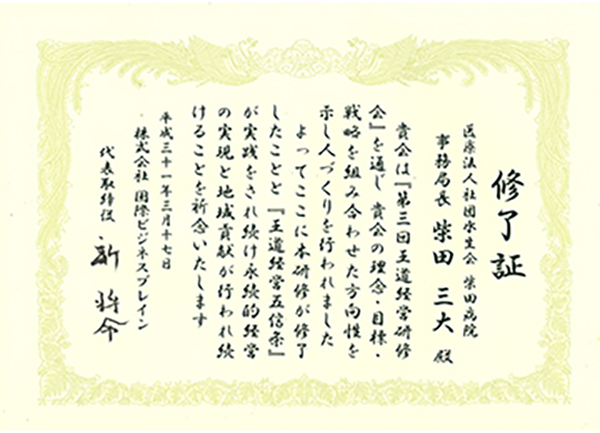 修了証
医療法人社団水生会 柴田病院
事務局長 柴田 三大 殿
貴会は『第三回王道経営研修
会』を通じ貴会の理念・目標・
戦略を組み合わせた方向性を
示し人づくりを行われました
よってここに本研修が修了
したことと『王道経営五信条』
が実践をされ続け永続的経営
の実現と地域貢献が行われ続
けることを祈念いたします
平成三十一年三月十七日
株式会社 国際ビジネスブレイン
代表取締役 新 将命